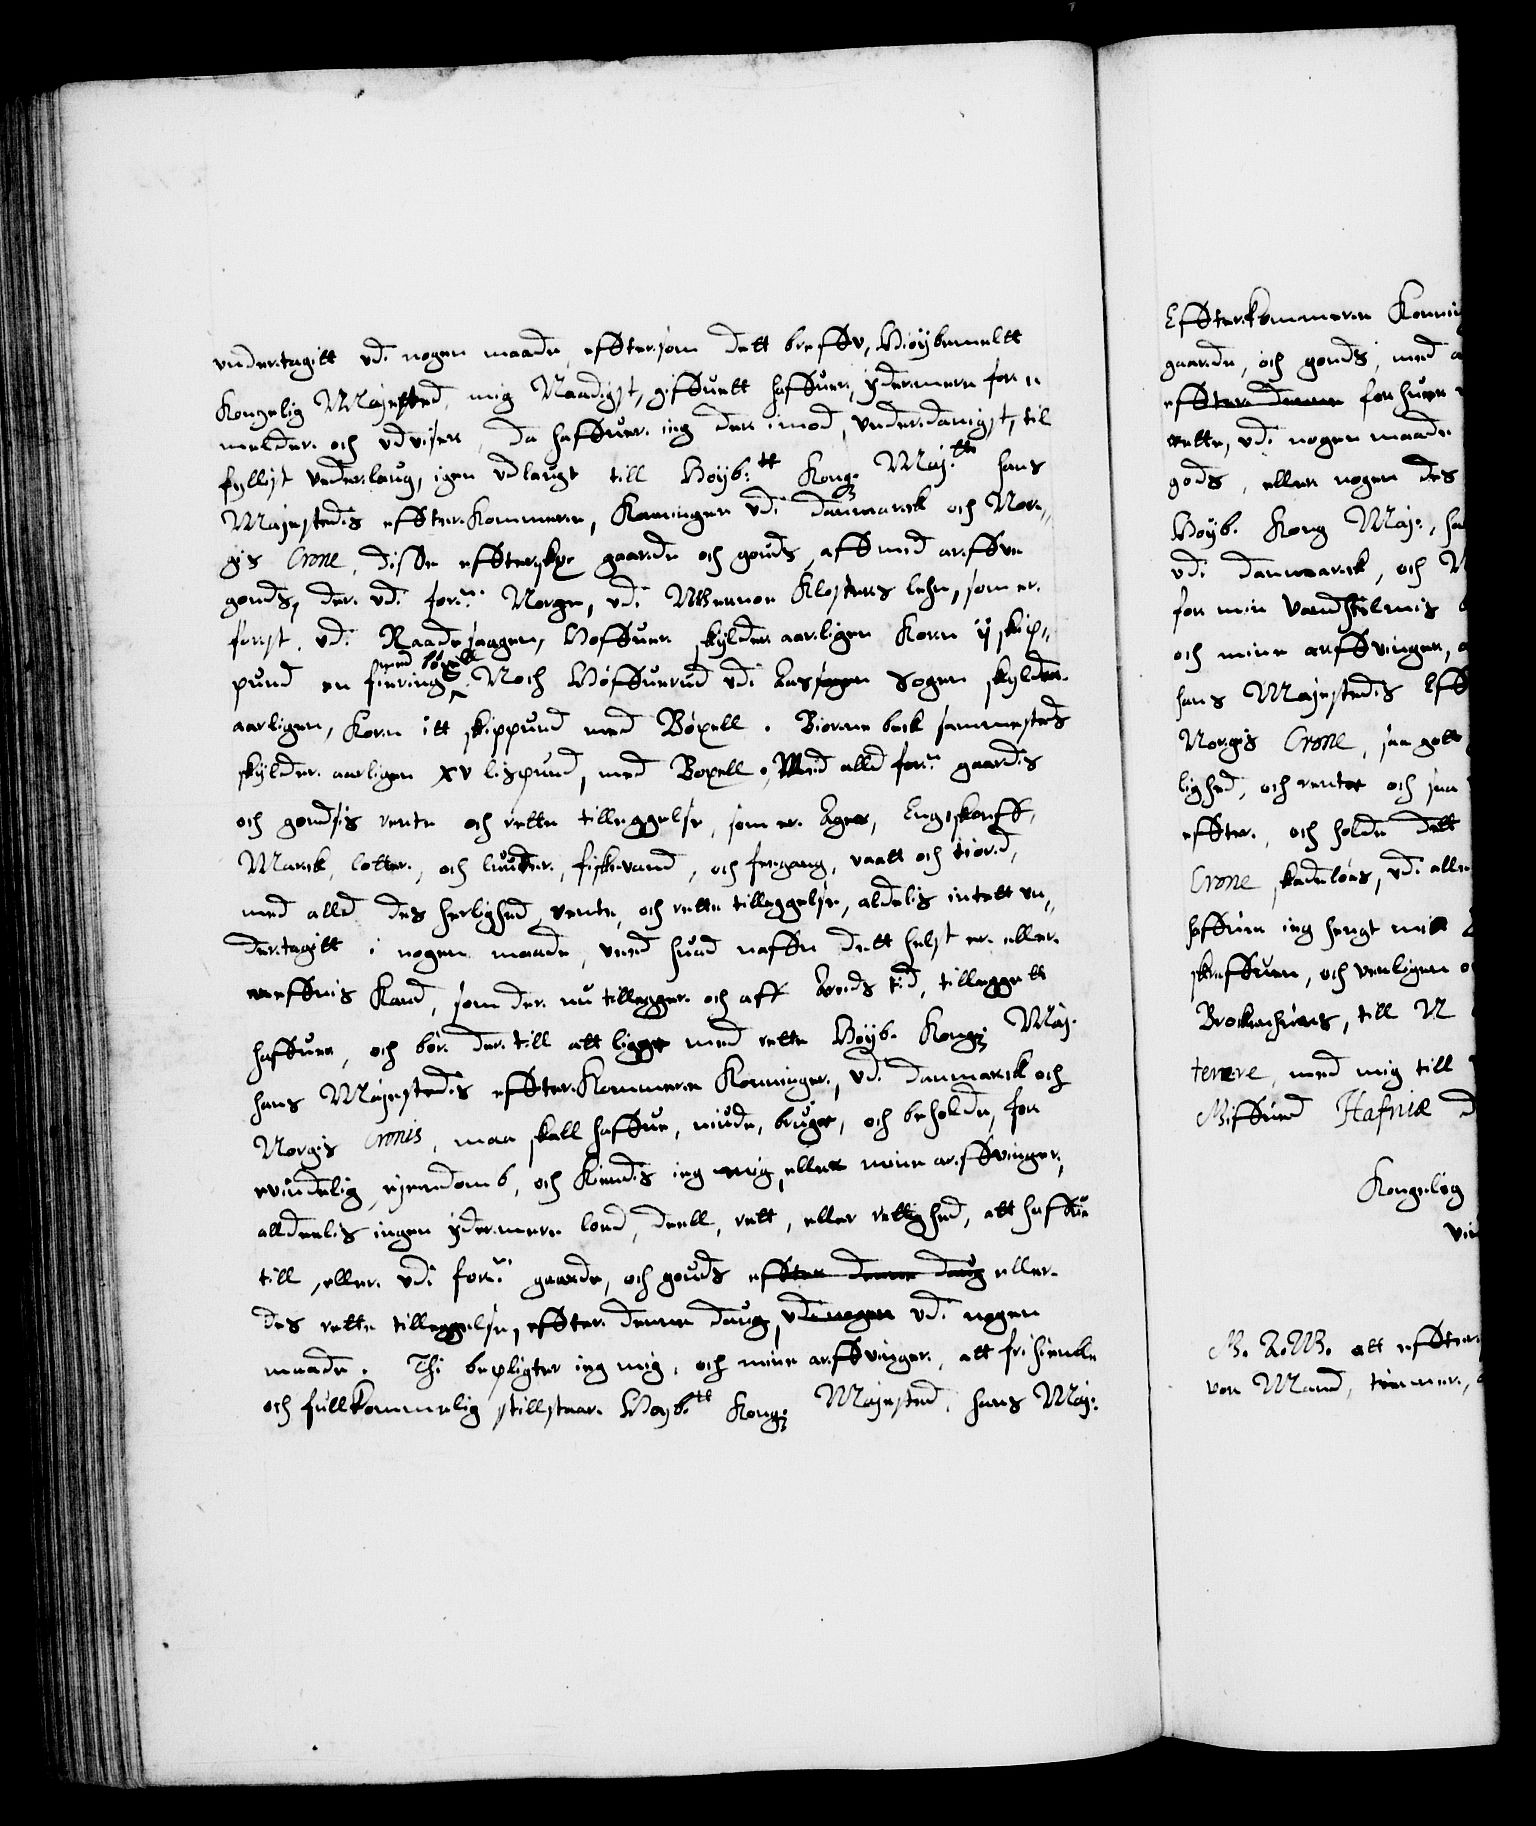 undertagitt vdi nogen maade, effterssom dett breffv, Høybemeltt
Kongelig Maÿested, mig Naadigst, giffuett haffuer, ÿdermere for¬
melder och vdviser, da haffuer ieg der imod, vnderdanigst, til
fyllist vederlaug, igen vdlaugt till Høyb:tt Kong: Maj:tts hans
Maÿestedis effterkommere, Koninger vdi danmarck och Nor¬
gis Crone, disse effterskr: gaarde och gouds, aff med arffve
gouds, der vdi for:ne Norge, vdi Wernøe Klosters lehn, som er
først, vdi Raadesaagen, Hoffuer skÿlder aarligen Korn ij skip¬
pund en fiering med bøxell. Noch Høffuerud vdi Aas sogen skylder
aarligen, Korn itt skippund med Bøxell. Biørnebeck sammesteds
skÿlder aarligen xv lispund, med Boxell. Med alld for:ne gaardis
och goudsis rente och rette tilleggelse, som er Ager, Eng, skouff,
Marck, lotter, och lunder, fiskevand, och fægang, vaatt och tiørd,
med alld des herlighed, rente, och rette tilleggelse, aldelis intett vn¬
dertagitt i nogen maade, veed huad naffn dett helst er eller
neffnis Kand, som der nu tillegger och aff Areds tid, tilleggett
haffuer, och bør der till att ligge med rette Høÿb. Kong: Maj:
hans Maÿestedis effterkommere Konninger, vdi danmarck och
Norgis Cronis, maa skall haffue, niude, bruge, och beholde, for
evindelig eyendomb, och Kiendis ieg mig, eller mine arffvinger,
alldeelis ingen ÿdermere lood, deell, rett, eller rettighed, att haffue
till, eller vdi for:ne gaarde, och gouds effter denne daug eller
des rette tilleggelse, effter denne daug, vdi nogen vdi nogen
maade. Thi bepligter ieg mig, och mine arffvinger, att fri hiemble
och fullkommelig tilstaar Høyb:tt Kong: Maÿested, hans Maj:
Effterkommere Konni
gaarde, och gouds, med a
effter denne for huer
rette, vdi nogen maade
gods, eller nogen des
Høyb. Kong Maj:, ha
vdi danmarck, och N
for min Vandhiemels
och mine arffvinger, a
hans Maÿestedis Eff
Norgis Crone, saa gott
lighed, och rente och saa
effter, och holde dett
Crone skadesløes, vdi alle
haffuer ieg hengt mit
skreffuen, och venligen o
Brockenhuus, till
terere, med mig till
Giffued Hafniæ d
Kongelig
vi
G. A. W. att effter
vor Mand, tienner,